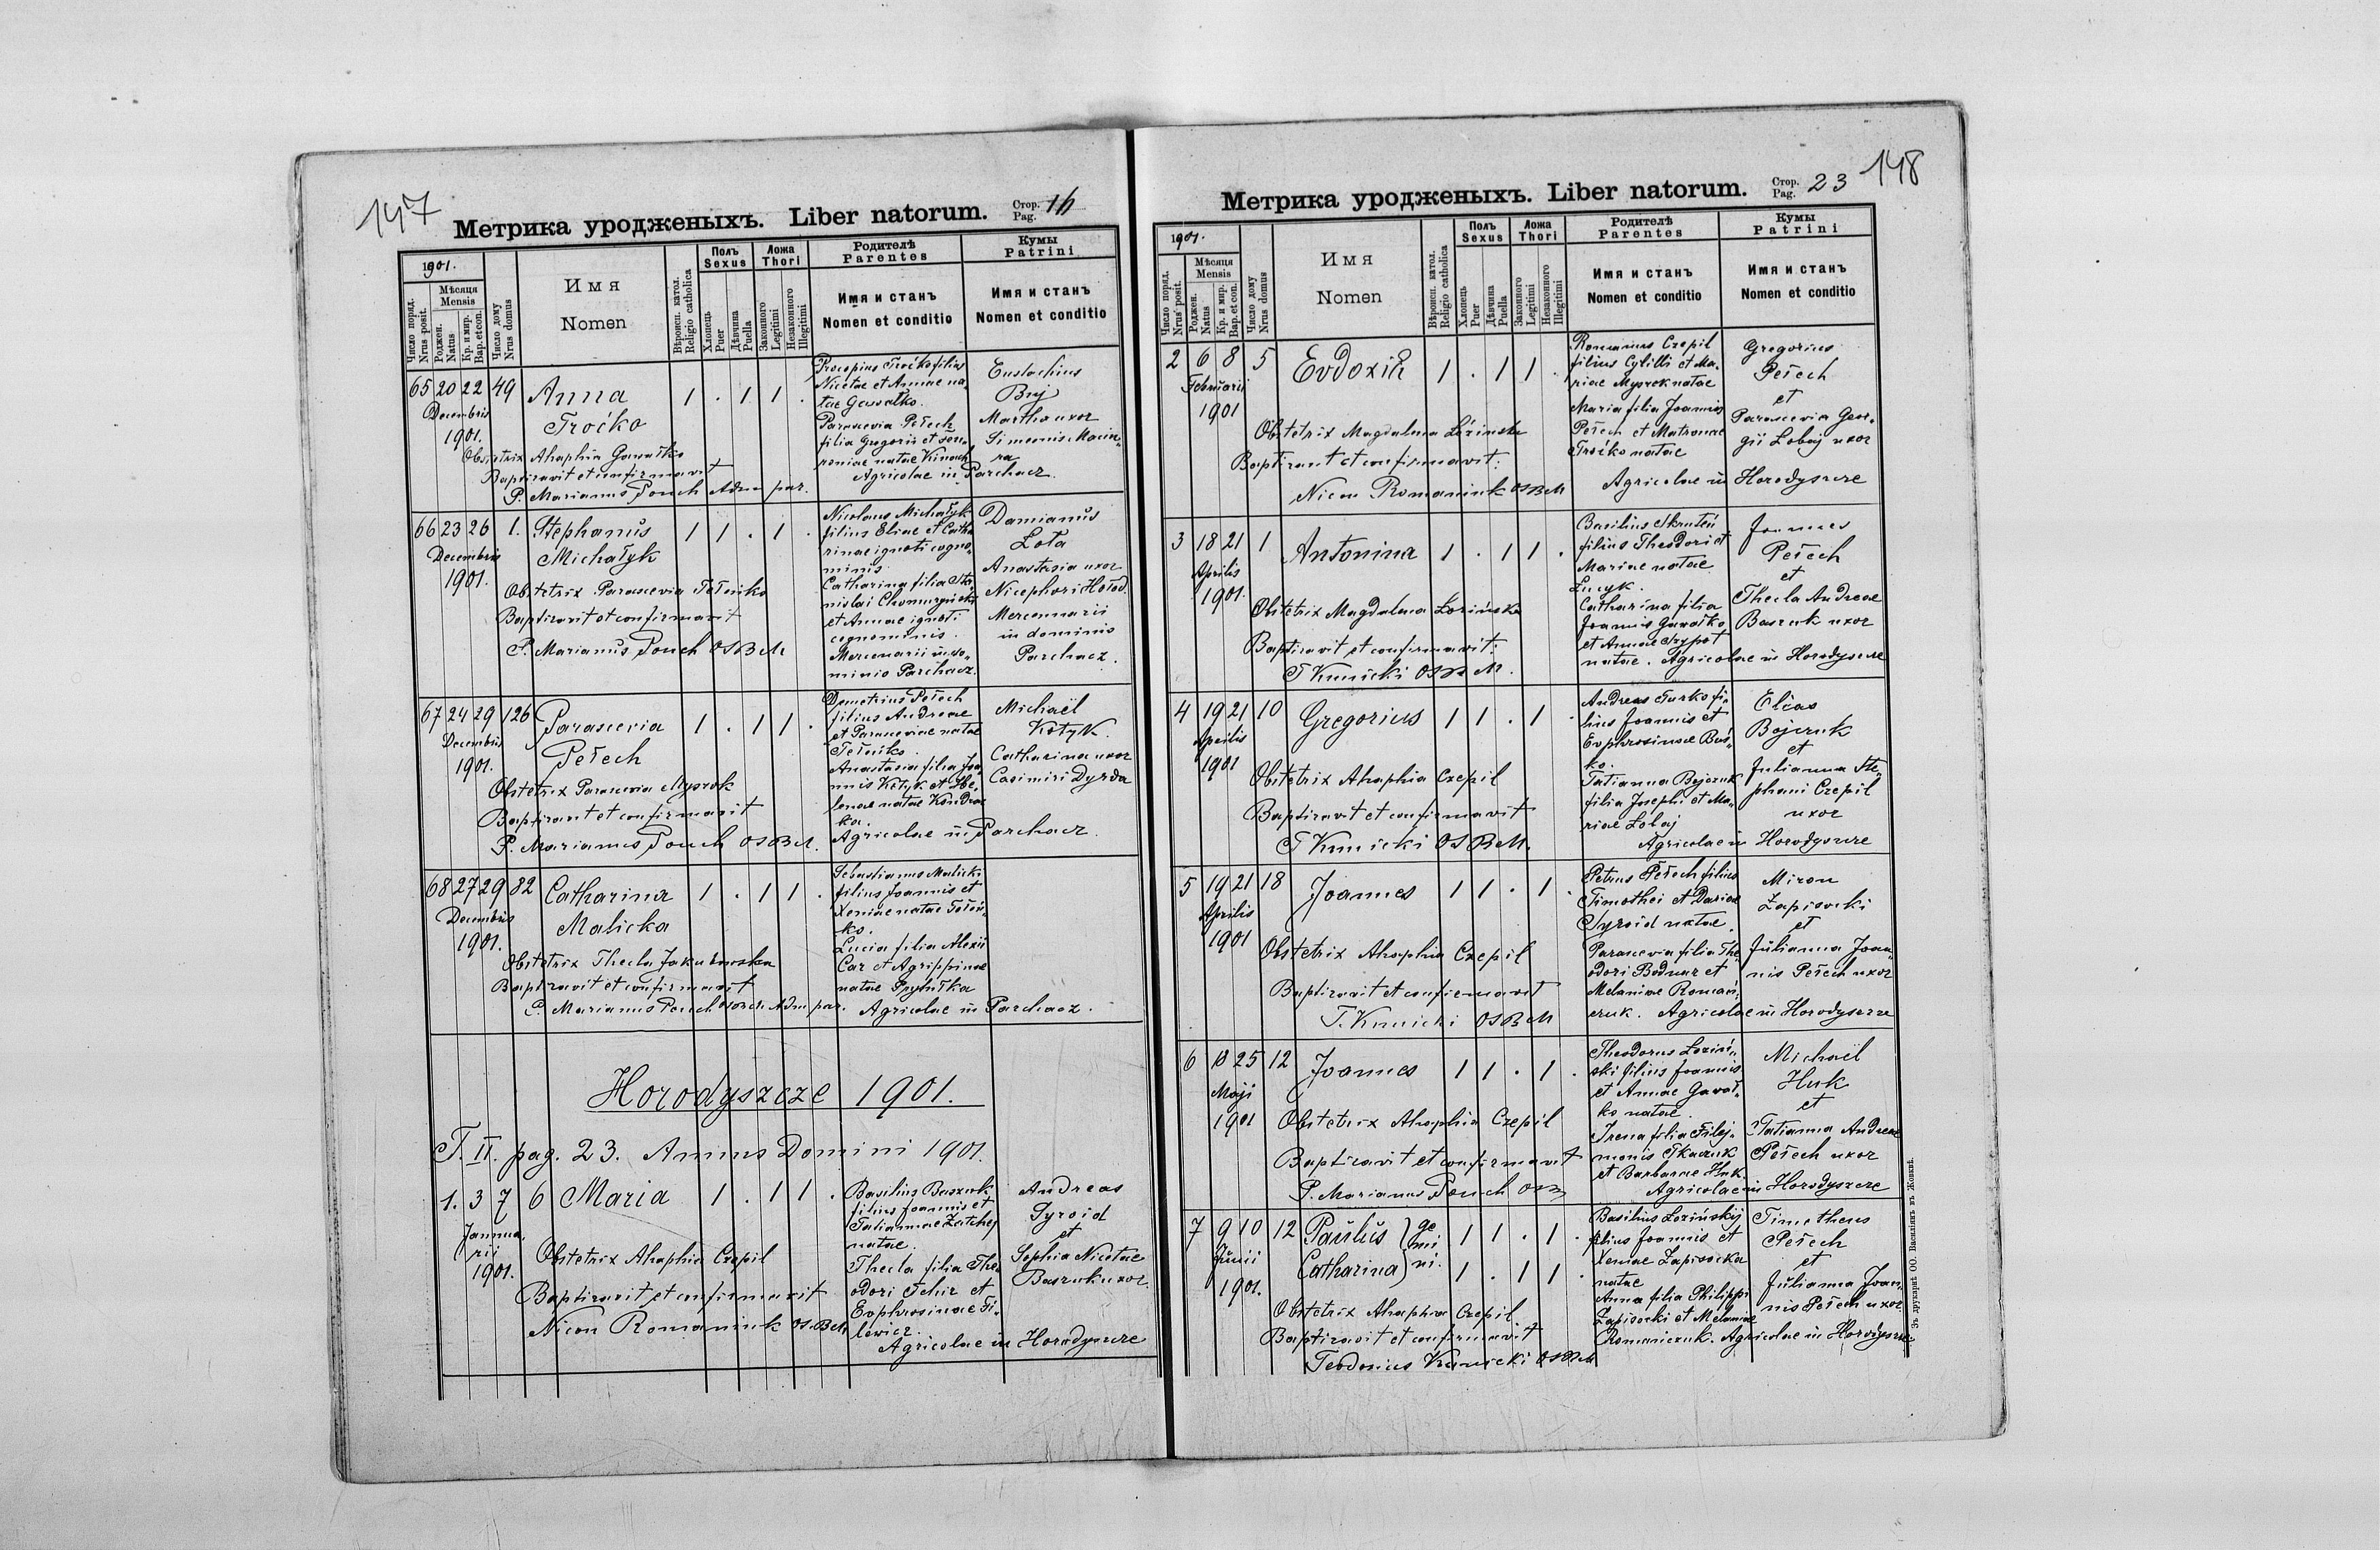 147
Метрика уродженыхъ. Liber natorum. Стор. Pag. 16
1901.
Число поряд. Nrus posit.
Мѣсяця Mensis
Роджен. Natus
Кр. и мир. Bap. et con.
Число дому Nrus domus
Имя Nomen
Вѣроисп. катол. Religio catholica
Полъ Sexus
Хлопець Puer
Дѣвчина Puella
Ложа Thori
Законного Legitimi
Незаконного Illegitimi
Родителѣ Parentes
Имя и станъ Nomen et conditio
Кумы Patrini
Имя и станъ Nomen et conditio
65 20 22 49 Anna Troćko 1 . 1 1 .
Decembris
1901.
Obstetrix Ahaphia Gawałko
Baptizavit et confirmavit
P. Marianus Pouch Adm par.
Procopius Troćko filius
Nicetae et Annae na-
tae Gawałko.
Parascevia Pełech
filia Gregorii et
natae
Agricolae in Parchacz.
Eustachius
Bryj
Martha uxor
Simeonis
66 23 26 1. Stephanus Michałyk 1 1 . 1 .
Decembris
1901.
Obstetrix Parascevia Teleńko
Baptizavit et confirmavit
P. Marianus Pouch OSBM
Nicolaus Michałyk
filius Eliae et Catha
rinae ignoti cogno-
minis
Catharina filia Sta-
nislai
et Annae ignoti
cognominis.
Mercenarii in do-
minio Parchacz.
Damianus
Lota
Anastasia uxor
Nicephori Hołod.
Mercenarii
in dominio
Parchacz.
67 24 29 126 Parascevia Pełech 1 . 1 1 .
Decembris
1901.
Obstetrix Parascevia Myszok
Baptizavit et confirmavit
P. Marianus Pouch OSBM.
Demetrius Pełech
filius Andreae
et Parasceviae natae
Teleńko.
Anastasia filia Joa
nnis Kotyk et He-
lenae natae Kondra
ka.
Agricolae in Parchacz.
Michaël
Kotyk.
Catharina uxor
Casimiri Dyrda
68 27 29 82 Catharina Malicka 1 . 1 1 .
Decembris
1901.
Obstetrix Thecla Jakubowska
Baptizavit et confirmavit
P. Marianus Pouch OSBM. Adm par.
Sebastianus Malicki
filius Joannis et
Xeniae natae Teleń-
ko.
Lucia filia Alexii
Car et Agrippinae
natae
Agricolae in Parchacz.
Horodyszcze 1901.
T. II. pag. 23. Annus Domini 1901.
1. 3 7 6 Maria 1 . 1 1 .
Janua-
rii
1901.
Obstetrix Ahaphia Czepil
Baptizavit et confirmavit
Nicon Romaniuk OSBM
Basilius Baszuk
filius Joannis et
Tatiannae
natae.
Thecla filia The
odori Fehir et
Euphrosinae Fi-
lewicz.
Agricolae in Horodyszcze
Andreas
Syroid
et
Sophia Nicetae
Baszuk uxor.
148
Метрика уродженыхъ. Liber natorum. Стор. Pag. 23
1901.
Число поряд. Nrus posit.
Мѣсяця Mensis
Роджен. Natus
Кр. и мир. Bap. et con.
Число дому Nrus domus
Имя Nomen
Вѣроисп. катол. Religio catholica
Полъ Sexus
Хлопець Puer
Дѣвчина Puella
Ложа Thori
Законного Legitimi
Незаконного Illegitimi
Родителѣ Parentes
Имя и станъ Nomen et conditio
Кумы Patrini
Имя и станъ Nomen et conditio
2 6 8 5 Evdoxia 1 . 1 1 .
Februarii
1901
Obstetrix Magdalena Lozinska
Baptizavit et confirmavit:
Nicon Romaniuk OSBM
Romanus Czepil
filius Cyrilli et Ma-
riae Myszok natae
Maria filia Joannis
Pełech et Matronae
Troćko natae
Agricolae in Horodyszcze
Gregorius
Pełech
et
Parascevia Geor-
gii Lobaj uxor
3 18 21 1 Antonina 1 . 1 1 .
Aprilis
1901.
Obstetrix Magdalena Lozińska
Baptizavit et confirmavit:
T Kunicki OSBM.
Basilius Skruteń
filius Theodori et
Mariae natae
Łucyk.
Catharina filia
Joannis Gawałko
et Annae
natae. Agricolae in Horodyszcze
Joannes
Pełech
et
Thecla Andreae
Baszuk uxor
4 19 21 10 Gregorius 1 1 . 1 .
Aprilis
1901
Obstetrix Ahaphia Czepil
Baptizavit et confirmavit
T Kunicki OSBM.
Andreas Turko fi-
lius Joannis et
Euphrosinae Buś-
ko.
Tatianna Bojczuk
filia Josephi et Ma-
riae Lobaj
Agricolae in Horodyszcze
Elias
Bojczuk
et
Julianna Ste-
phani Czepil
uxor
5 19 21 18 Joannes 1 1 . 1 .
Aprilis
1901
Obstetrix Ahaphia Czepil
Baptizavit et confirmavit
T. Kunicki OSBM
Petrus Pełech filius
Timothei et Dariae
Syroid natae.
Parascevia filia The
odori Bodnar et
Melaniae Romani-
czuk. Agricolae in Horodyszcze
Miron
Zapisocki
et
Julianna Joan-
nis Pełech uxor
6 18 25 12 Joannes 1 1 . 1 .
Maji
1901
Obstetrix Ahaphia Czepil
Baptizavit et confirmavit
P. Marianus Pouch
Theodorus Loziń-
ski filius Joannis
et Annae Gawał-
ko natae.
Irena filia Filej-
monis Tkaczuk
et Barbarae Huk.
Agricolae in Horodyszcze
Michaël
Huk
et
Tatianna Andreae
Pełech uxor
7 9 10 12 Paulus Catharina) ge mi ni. 1 1 . 1 .
1 . 1 1 .
Junii
1901.
Obstetrix Ahaphia Czepil.
Baptizavit et confirmavit
Teodosius Kunicki OSBM
Basilius Lozińskij
filius Joannis et
Xeniae Zapisocka
natae
Anna filia Philippi
Zapisocki et Melaniae
Romaniczuk. Agricolae in Horodyszcze
Timotheus
Pełech
et
Julianna Joan-
nis Pełech uxor
Зъ друкарнѣ ОО. Василіянъ въ Жовквѣ.